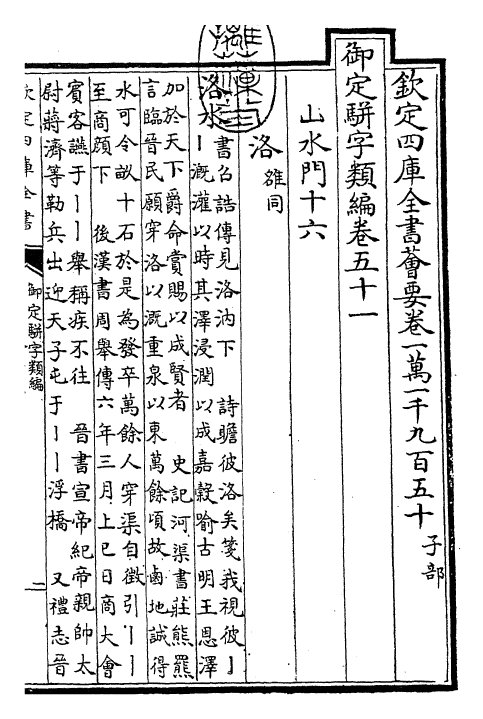 欽定四庫全書薈要卷一萬一千九百五十 子部
御定駢字類編卷五十一
山水門十六
洛 雒同
洛水 書召誥傳見洛汭下 詩瞻彼洛矣箋我視彼丨
丨溉灌以時其澤浸潤以成嘉穀喻古明王恩澤
加於天下爵命賞賜以成賢者 史記河渠書莊熊羆
言臨晉民願穿洛以溉重泉以東萬餘頃故鹵地誠得
水可令畝十石於是為發卒萬餘人穿渠自徵引丨丨
至商顔下 後漢書周舉傳六年三月上巳日商大會
賓客讌于丨丨舉稱疾不往 晉書宣帝紀帝親帥太
尉蔣濟等勒兵出迎天子屯于丨丨浮橋 又禮志晉
欽定四庫全書
御定駢字類編